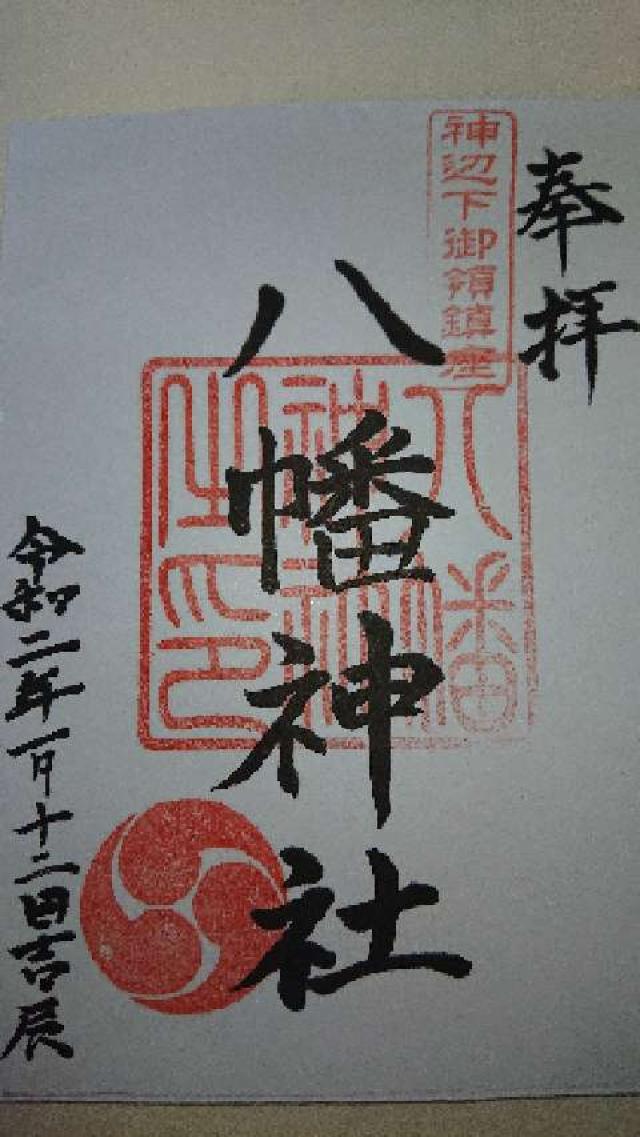 奉拝
神辺下御領鎮座
八幡神社
八幡
神社
之印
令和二年一月十二日吉辰